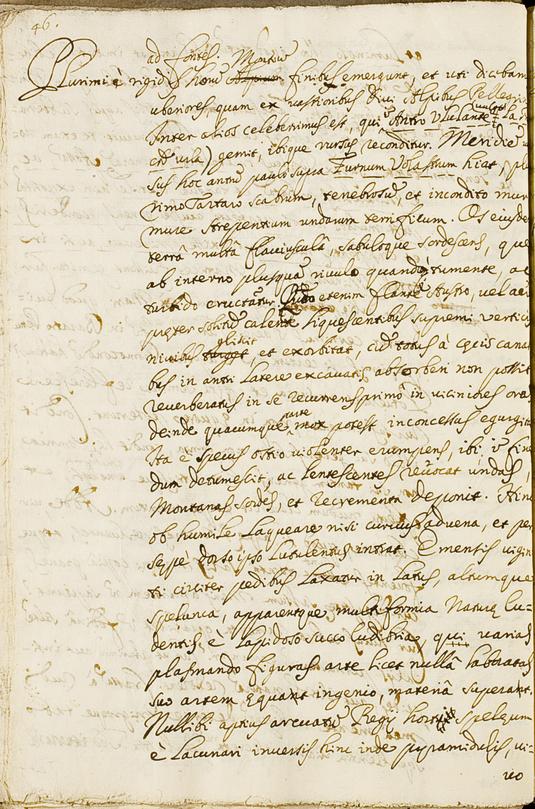 46.
ad fontes Montiū
Plurimi è rigidis horū finibus emergunt, et uti diceban
uberiores, quam ex vastioribus Divi Alpibus Pelle
Inter alios celeberrimus est, qui Antro Ululante
gemit, ibique rursus reconditur. Meridiē
sus hoc antrū paulo supra Furnum Volastrum hiat, plu
rimo Tartaro scabrum, tenebrosū, et incondito mur
mure strepentium undarum terrificum. Os eiusdē
terrâ multâ flaviusculâ, sabuloque sordescens, quę
ab interno plusquā rivulo quandoq̃ tumente, ac
turbido eructātur. Udo etenim flante Austro, vel aer
pręter solitū calente liquescentibus supremi vertici
nivibus gliscit, et exorbitat, totus à cęcis cana
bus in antri latere excavatis absorberi non possit
reverberatus in se recurrens primò in viciniores ora
deinde quacumque parte potest inconcessus egurgita
Ita è specus ostio violenter erumpens, ibi
dum detumescit, ac lentescentes revocat undas,
Montanas sordes, et recrementa deponit. Hinc
ob humile laqueare nisi curvus advena, et per
sępè dorso ipso lutulentus intrat. Emensis vigin
ti circiter pedibus laxatur in latus, altumque
spelunca, apparentque multiformia Naturę lu
dentis è lapidoso succo ludibria, quę varias
plasmando figuras arte licet nullâ laboratas
suo artem ęquant ingenio, materiâ superant.
Nullibi aptius arcuatū Regijs hortis spelęum
è lacunari inversis hinc inde pyramidulis, vi-
vo